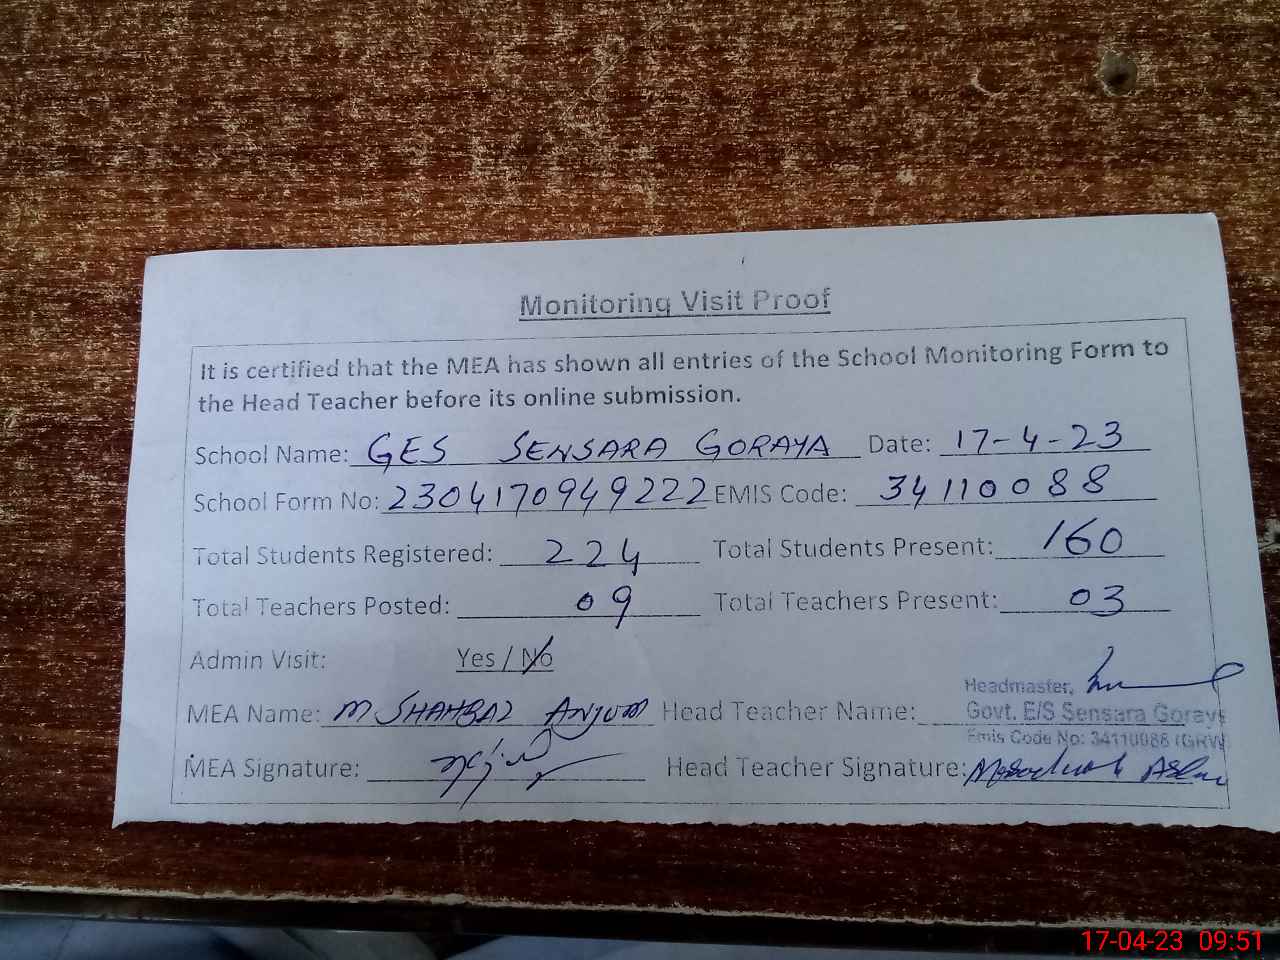 Monitoring Visit Proof
It is certified that the MEA has shown all entries of the School Monitoring Form to
the Head Teacher before its online submission.
School Name: GES SENSARA GORAYA Date: 17-4-23
School Form No: 2304170949222 EMIS Code: 34110088
Total Students Registered: 224 Total Students Present: 160
Total Teachers Posted: 09 Total Teachers Present: 03
Admin Visit: Yes / No
Headmaster,
MEA Name: M SHAHBAZ ANJUM Head Teacher Name: Govt. E/S Sensara Goraya
Emis Code No: 34110088 (GRW)
MEA Signature: Head Teacher Signature:
17-04-23 09:51